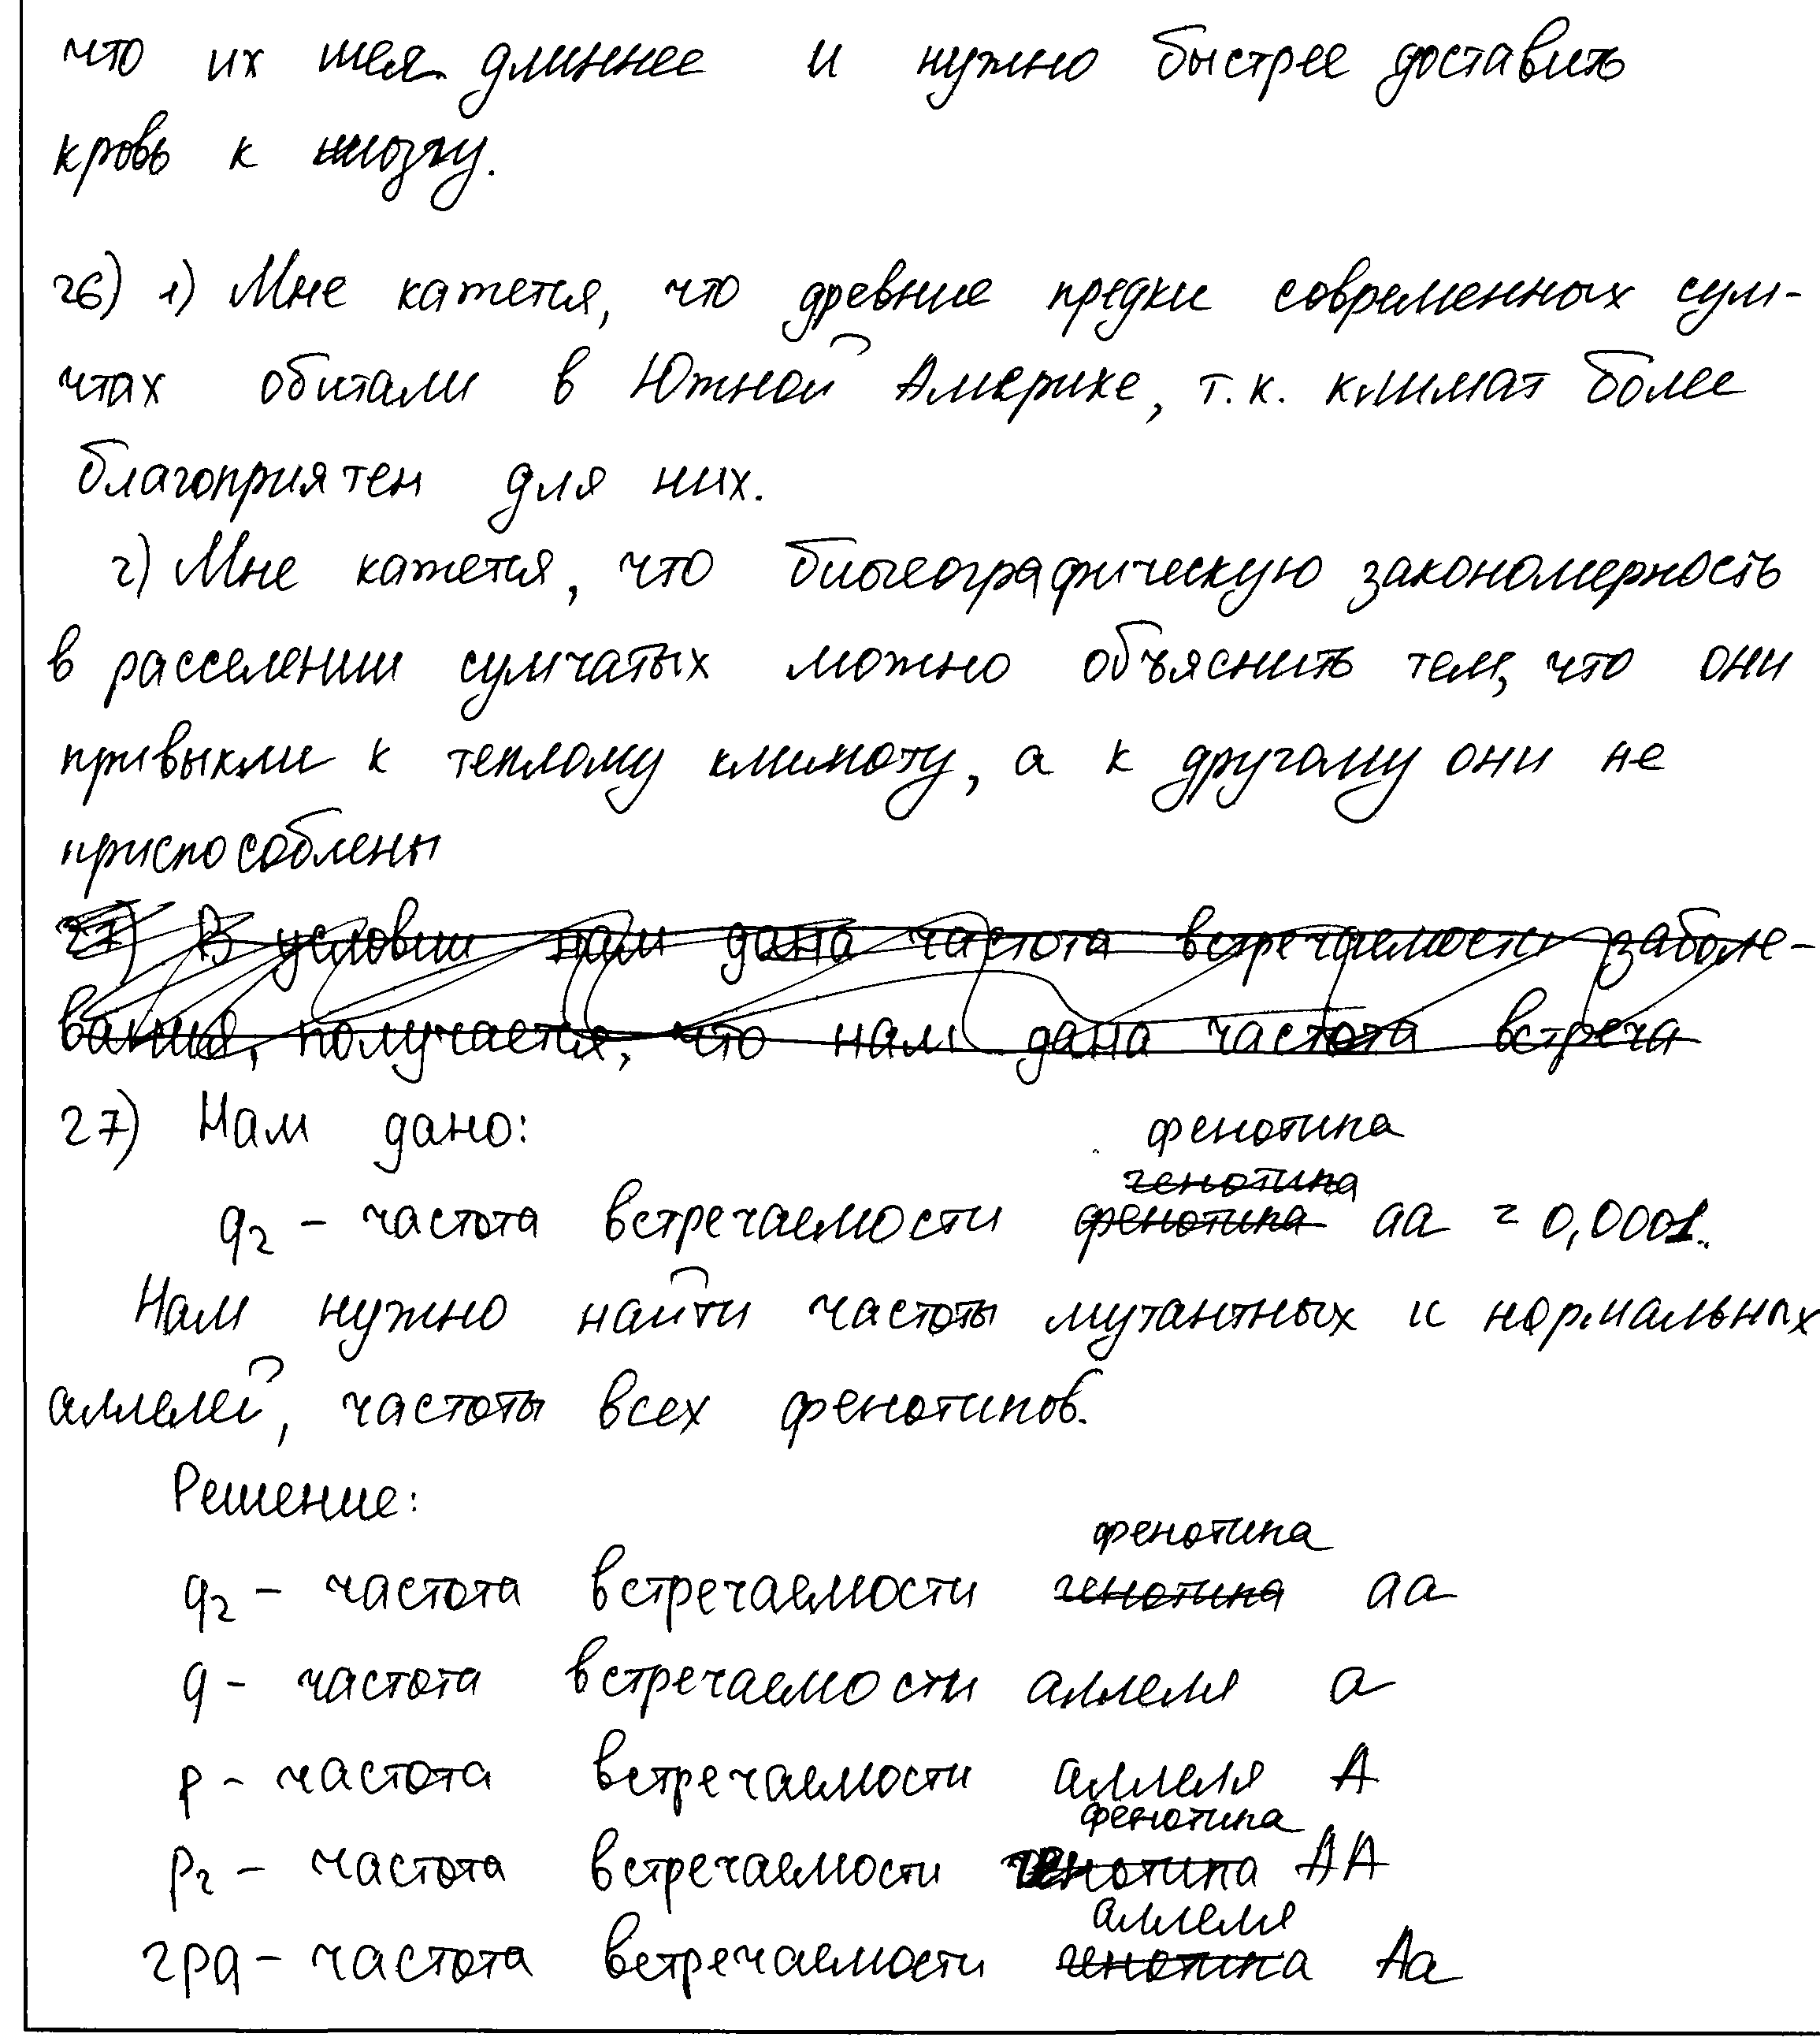 что их шея длиннее и нужно быстрее доставить
кровь к мозгу.
26) 1) Мне кажется, что древние предки современных сум-
чтах обитали в Южной Америке, т.к. климат более
благоприятен для них.
2) Мне кажется, что биогеографическую закономерность
в расселении сумчатых можно объяснить тем, что они
привыкли к теплому климоту, а к другому они не
приспособлены
27) В условии нам дана частота встречаемости заболе-
вания, получается, что нам дана частота встреча
27) Нам дано:
фенотипа
генотипа
q2 – частота встречаемости фенотипа аа = 0,0001.
Нам нужно найти частоты мутантных и нормальных
аллелей, частоты всех фенотипов.
Решение:
фенотипа
q2 – частота встречаемости генотипа аа
q – частота встречаемости аллеля а
p – частота встречаемости аллеля А
фенотипа
p2 – частота встречаемости генотипа АА
аллеля
2pq – частота встречаемости генотипа Аа